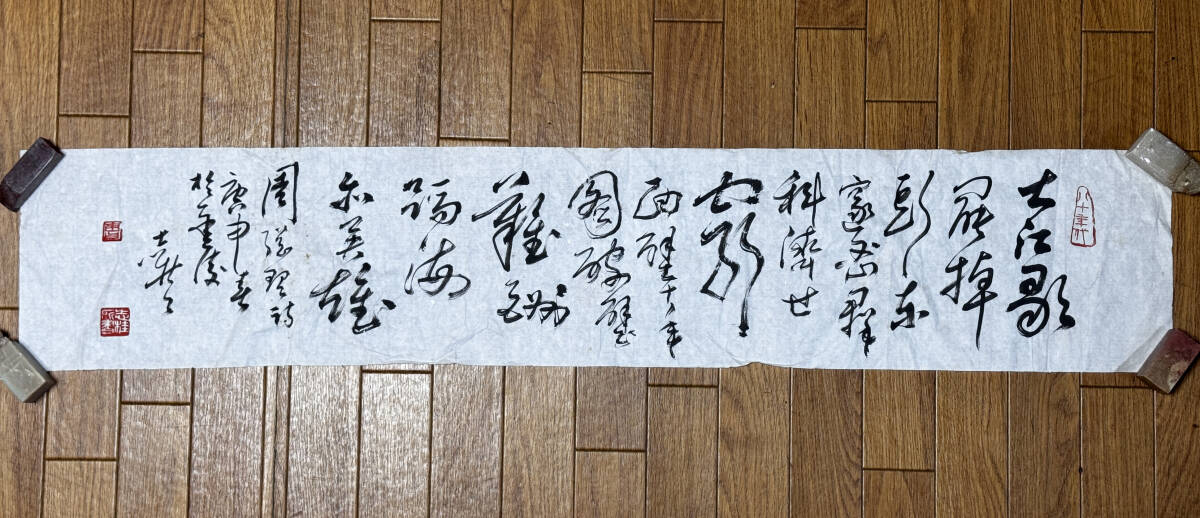 八十年代
大江歌
罷掉
頭东
邃密群
科濟世
窮
面壁十年
圖破壁
難酬
蹈海
亦英雄
周總理詩
庚申春
於重慶